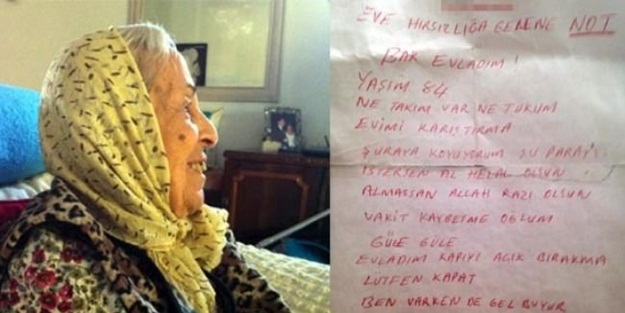 EVE HIRSIZLIĞA GELENE NOT
BAK EVLADIM!
YAŞIM 84
NE TAKIM VAR NE TUKUM
EVİMİ KARIŞTIRMA
ŞURAYA KOYUYORUM ŞU PARAYI
İSTERSEN AL HELAL OLSUN
ALMASSAN ALLAH RAZI OLSUN
VAKİT KAYBETME OĞLUM
GÜLE GULE
EVLADIM KAPIYI AÇIK BIRAKMA
LÜTFEN KAPAT
BEN VARKEN DE GEL BUYUR